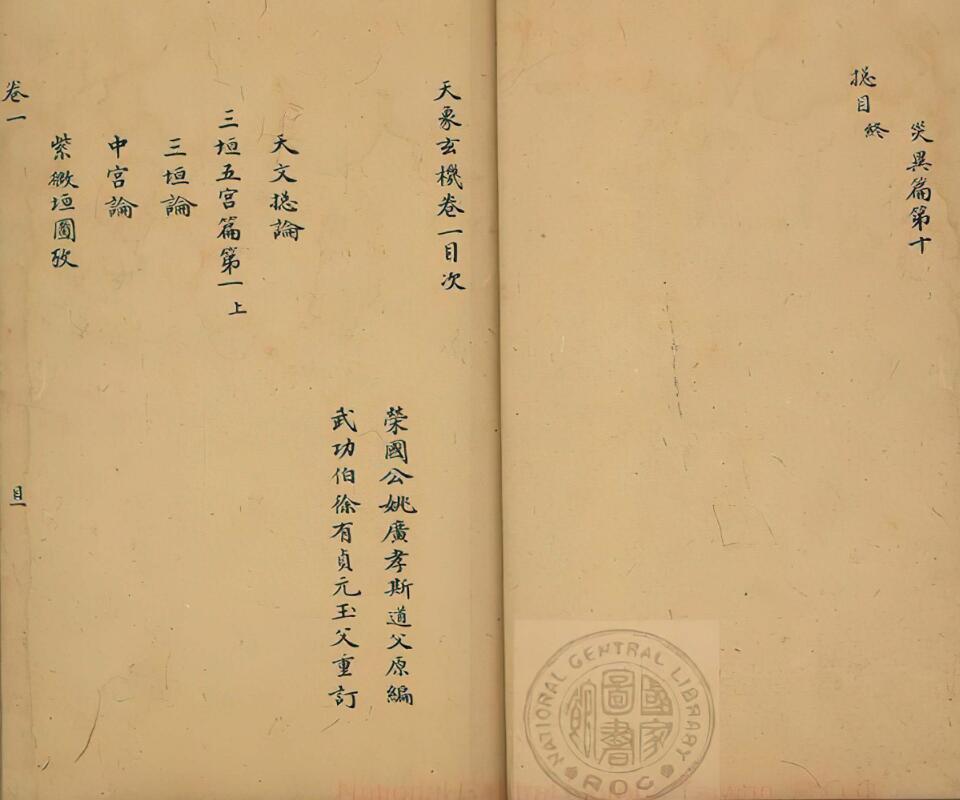 災異篇第十
捴目終
天象玄機卷一目次
榮國公姚廣孝斯道父原編
武功伯徐有貞元玉父重訂
天文捴論
三垣五宮篇第一上
三垣論
中宮論
紫微垣圖攷
卷一
目一
NATIONAL CENTRAL LIBRARY
ROC
國家圖書館